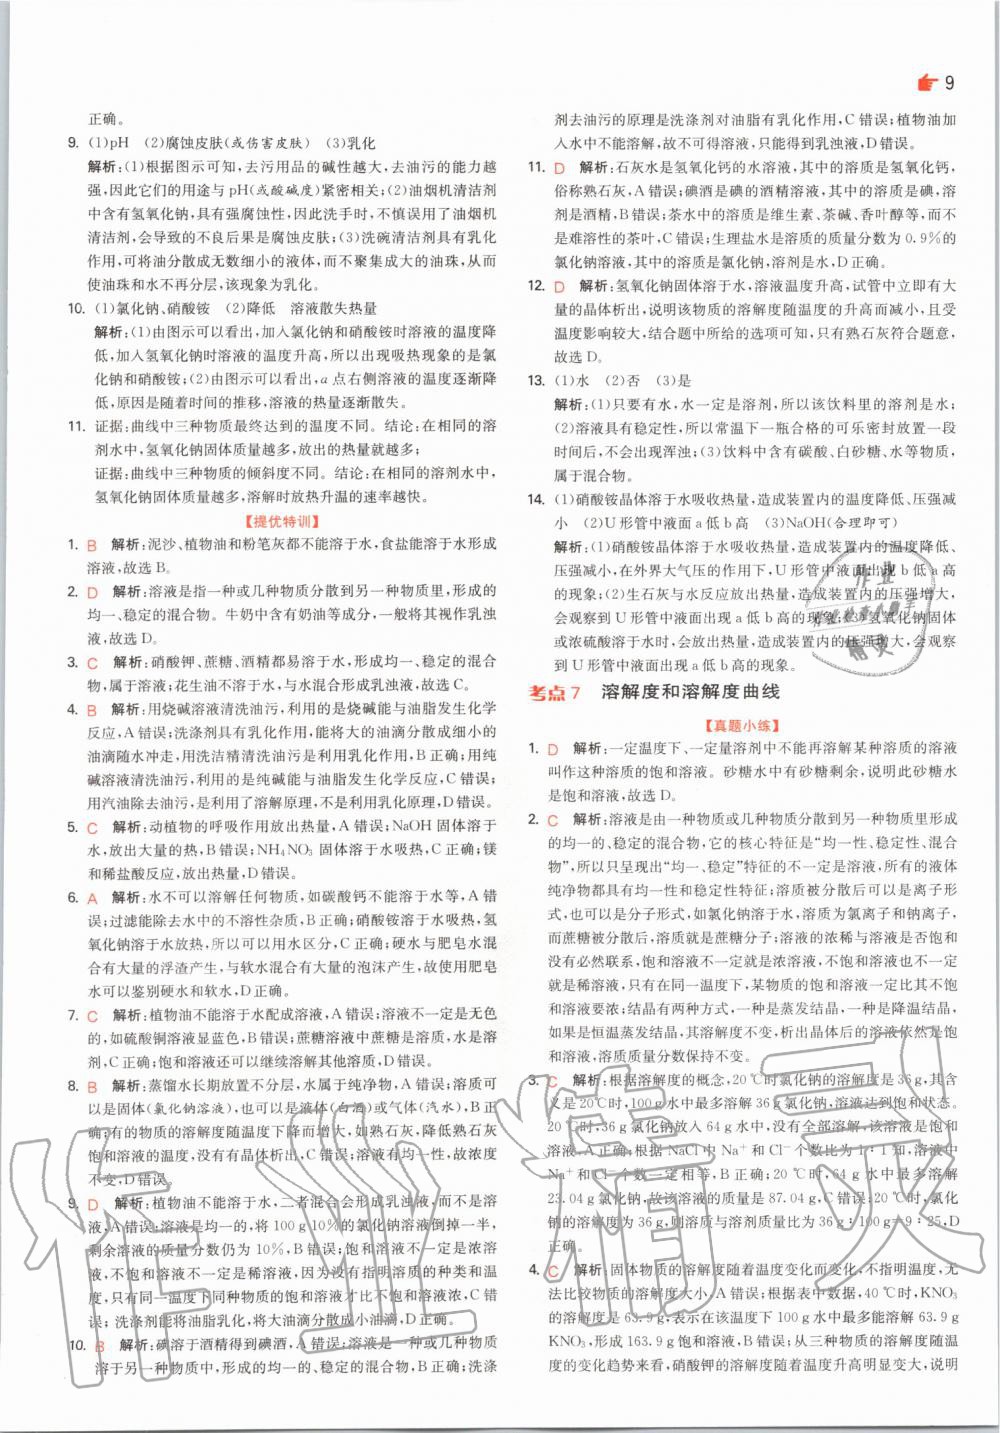 9
正确。
9. (1)pH (2)腐蚀皮肤(或伤害皮肤) (3)乳化
解析:(1)根据图示可知,去污用品的碱性越大,去油污的能力越
强,因此它们的用途与 pH(或酸碱度)紧密相关;(2)油烟机清洁剂
中含有氢氧化钠,具有强腐蚀性,因此洗手时,不慎误用了油烟机
清洁剂,会导致的不良后果是腐蚀皮肤;(3)洗碗清洁剂具有乳化
作用,可将油分散成无数细小的液体,而不聚集成大的油珠,从而
使油珠和水不再分层,该现象为乳化。
10. (1)氯化钠、硝酸铵 (2)降低 溶液散失热量
解析:(1)由图示可以看出,加入氯化钠和硝酸铵时溶液的温度降
低,加入氢氧化钠时溶液的温度升高,所以出现吸热现象的是氯
化钠和硝酸铵;(2)由图示可以看出,a 点右侧溶液的温度逐渐降
低,原因是随着时间的推移,溶液的热量逐渐散失。
11. 证据:曲线中三种物质最终达到的温度不同。结论:在相同的溶
剂水中,氢氧化钠固体质量越多,放出的热量就越多;
证据:曲线中三种物质的倾斜度不同。结论:在相同的溶剂水中,
氢氧化钠固体质量越多,溶解时放热升温的速率越快。
【提优特训】
1. B 解析:泥沙、植物油和粉笔灰都不能溶于水,食盐能溶于水形成
溶液,故选 B。
2. D 解析:溶液是指一种或几种物质分散到另一种物质里,形成的
均一、稳定的混合物。牛奶中含有奶油等成分,一般将其视作乳浊
液,故选 D。
3. C 解析:硝酸钾、蔗糖、酒精都易溶于水,形成均一、稳定的混合
物,属于溶液;花生油不溶于水,形成乳浊液,故选 C。
4. B 解析:用烧碱溶液清洗油污,利用的是烧碱能与油脂发生化学
反应,A 错误;洗涤剂具有乳化作用,能将大的油滴分散成细小的
油滴随水冲走,用洗洁精清洗油污是利用乳化作用,B 正确;用纯
碱溶液清洗油污,利用的是纯碱能与油脂发生化学反应,C 错误;
用汽油除去油污,是利用了溶解原理,不是利用乳化原理,D 错误。
5. C 解析:动植物的呼吸作用放出热量,A 错误;NaOH 固体溶于
水,放出大量的热,B 错误;NH₄NO₃ 固体溶于水吸热,C 正确;镁
和稀盐酸反应,放出热量,D 错误。
6. A 解析:水不可以溶解任何物质,如碳酸钙不能溶于水等,A 错
误;过滤能除去水中的不溶性杂质,B 正确;硝酸铵溶于水吸热,氢
氧化钠溶于水放热,所以可以用水区分,C 正确;硬水与肥皂水混
合有大量的浮渣产生,与软水混合有大量的泡沫产生,故用肥皂水
可以鉴别硬水和软水,D 正确。
7. C 解析:植物油不能溶于水配成溶液,A 错误;溶液不一定是无色
的,如硫酸铜溶液显蓝色,B 错误;蔗糖溶液中蔗糖是溶质,水是溶
剂,C 正确;饱和溶液还可以继续溶解其他溶质,D 错误。
8. B 解析:蒸馏水长期放置不分层,属于纯净物,A 错误;溶质可以
是固体(氯化钠溶液),也可以是液体(白酒)或气体(汽水),B 正
确;有的物质的溶解度随温度下降而增大,如熟石灰,降低熟石灰
饱和溶液的温度,没有晶体析出,C 错误;溶液具有均一性,故浓度
不变,D 错误。
9. D 解析:植物油不能溶于水,二者混合会形成乳浊液,而不是溶
液,A 错误;溶液是均一的,将 100 g 10%的氯化钠溶液倒掉一半,
剩余溶液的质量分数仍为 10%,B 错误;饱和溶液不一定是浓溶
液,不饱和溶液不一定是稀溶液,因为没有指明溶质的种类和温
度,只有在同一温度下同种物质的饱和溶液才比不饱和溶液浓,C 错
误;洗涤剂能将油乳化,将大油滴分散成小油滴,D 正确。
10. B 解析:碘溶于酒精得到碘酒,A 错误;溶液是一种或几种物质
溶于另一种物质中,形成的均一的、稳定的混合物,B 正确;洗涤
剂去油污的原理是洗涤剂对油脂有乳化作用,C 错误;植物油加
入水中不能溶解,故不可得溶液,只能得到乳浊液,D 错误。
11. D 解析:石灰水是氢氧化钙的水溶液,其中的溶质是氢氧化钙,
俗称熟石灰,A 错误;碘酒是碘的酒精溶液,其中的溶质是碘,溶
剂是酒精,B 错误;茶水中的溶质是维生素、茶碱、香叶醇等,而不
是难溶性的茶叶,C 错误;生理盐水是溶质的质量分数为 0.9%的
氯化钠溶液,其中的溶质是氯化钠,D 正确。
12. D 解析:氢氧化钠固体溶于水,溶液温度升高,试管中立即有大
量的晶体析出,说明该物质的溶解度随温度的升高而减小,且受
温度影响较大,结合题中所给的选项可知,只有熟石灰符合题意,
故选 D。
13. (1)水 (2)否 (3)是
解析:(1)只要有水,水一定是溶剂,所以该饮料里的溶剂是水;
(2)溶液具有稳定性,所以常温下一瓶合格的可乐密封放置一段
时间后,不会出现浑浊;(3)饮料中含有碳酸、白砂糖、水等物质,
属于混合物。
14. (1)硝酸铵晶体溶于水吸收热量,造成装置内的温度降低、压强减
小 (2)U 形管中液面 a 低 b 高 (3)NaOH(合理即可)
解析:(1)硝酸铵晶体溶于水吸收热量,造成装置内的温度降低、
压强减小,在外界大气压的作用下,U 形管中液面出现 b 低 a 高
的现象;(2)生石灰与水反应放出热量,造成装置内的压强增大,
会观察到 U 形管中液面出现 a 低 b 高的现象;(3)氢氧化钠固体
或浓硫酸溶于水时,会放出热量,造成装置内压强增大,会观察
到 U 形管中液面出现 a 低 b 高的现象。
考点 7 溶解度和溶解度曲线
【真题小练】
1. D 解析:一定温度下、一定量溶剂中不能再溶解某种溶质的溶液
叫作这种溶质的饱和溶液。砂糖水中有砂糖剩余,说明此砂糖水
是饱和溶液,故选 D。
2. C 解析:溶液是由一种物质或几种物质分散到另一种物质里形成
的均一的、稳定的混合物,它的核心特征是“均一性、稳定性、混合
物”,所以只呈现出“均一、稳定”特征的不一定是溶液,所有的液体
纯净物都具有均一性和稳定性特征;溶质被分散后可以是离子形
式,也可以是分子形式,如氯化钠溶于水,溶质为氯离子和钠离子,
而蔗糖被分散后,溶质就是蔗糖分子;溶液的浓稀与溶液是否饱和
没有必然联系,饱和溶液不一定就是浓溶液,不饱和溶液也不一定
就是稀溶液,只有在同一温度下,某物质的饱和溶液一定比其不饱
和溶液要浓;结晶有两种方式,一种是蒸发结晶,一种是降温结晶,
如果是恒温蒸发结晶,其溶解度不变,析出晶体后的溶液依然是饱
和溶液,溶质质量分数保持不变。
3. C 解析:根据溶解度的概念,20 ℃时氯化钠的溶解度是 36 g,其含
义是 20 ℃时,100 g 水中最多溶解 36 g 氯化钠,溶液达到饱和状态。
20 ℃时,36 g 氯化钠放入 64 g 水中,没有全部溶解,该溶液是饱和
溶液,A 正确;根据氯化钠中 Na⁺ 和 Cl⁻ 个数比为 1∶1 知,溶液中
Na⁺ 和 Cl⁻ 个数一定相等,B 正确;20 ℃时,64 g 水中最多溶解
23.04 g 氯化钠,故该溶液的质量是 87.04 g,C 错误;20 ℃时,氯化
钠的溶解度为 36 g,则溶质与溶剂质量比为 36 g∶100 g=9∶25,D
正确。
4. C 解析:固体物质的溶解度随着温度变化而变化,不指明温度,无
法比较物质的溶解度大小,A 错误;根据表中数据,40 ℃时,KNO₃
的溶解度是 63.9 g,表示在该温度下 100 g 水中最多能溶解 63.9 g
KNO₃,形成 163.9 g 饱和溶液,B 错误;从三种物质的溶解度随温
度的变化趋势来看,硝酸钾的溶解度随着温度升高明显变大,说明
作业精灵